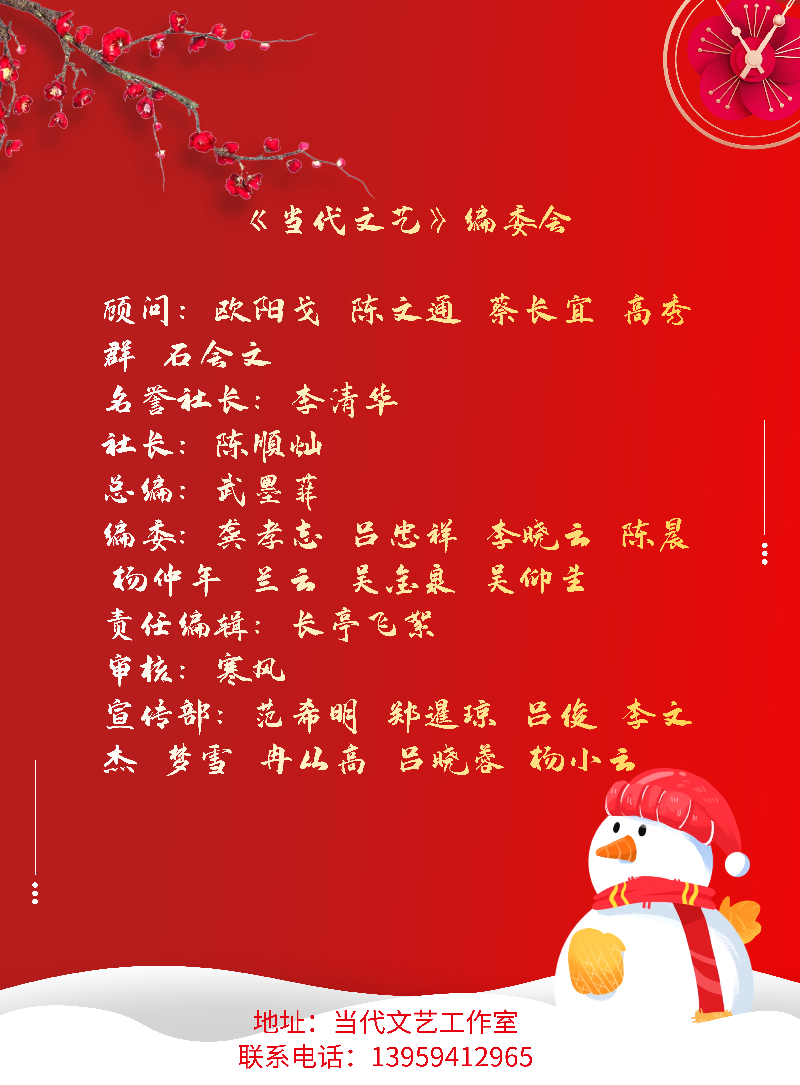 《当代文艺》编委会
顾问：欧阳戈 陈文通 蔡长宜 高秀
群 石会文
名誉社长：李清华
社长：陈順灿
总编：武墨菲
编委：龚孝志 吕忠祥 李晓云 陈晨
杨仲年 兰云 吴金泉 吴仰生
责任编辑：长亭飞絮
审核：寒风
宣传部：范希明 郑暹琼 吕俊 李文
杰 梦雪 冉从高 吕晓蓉 杨小云
地址：当代文艺工作室
联系电话：13959412965